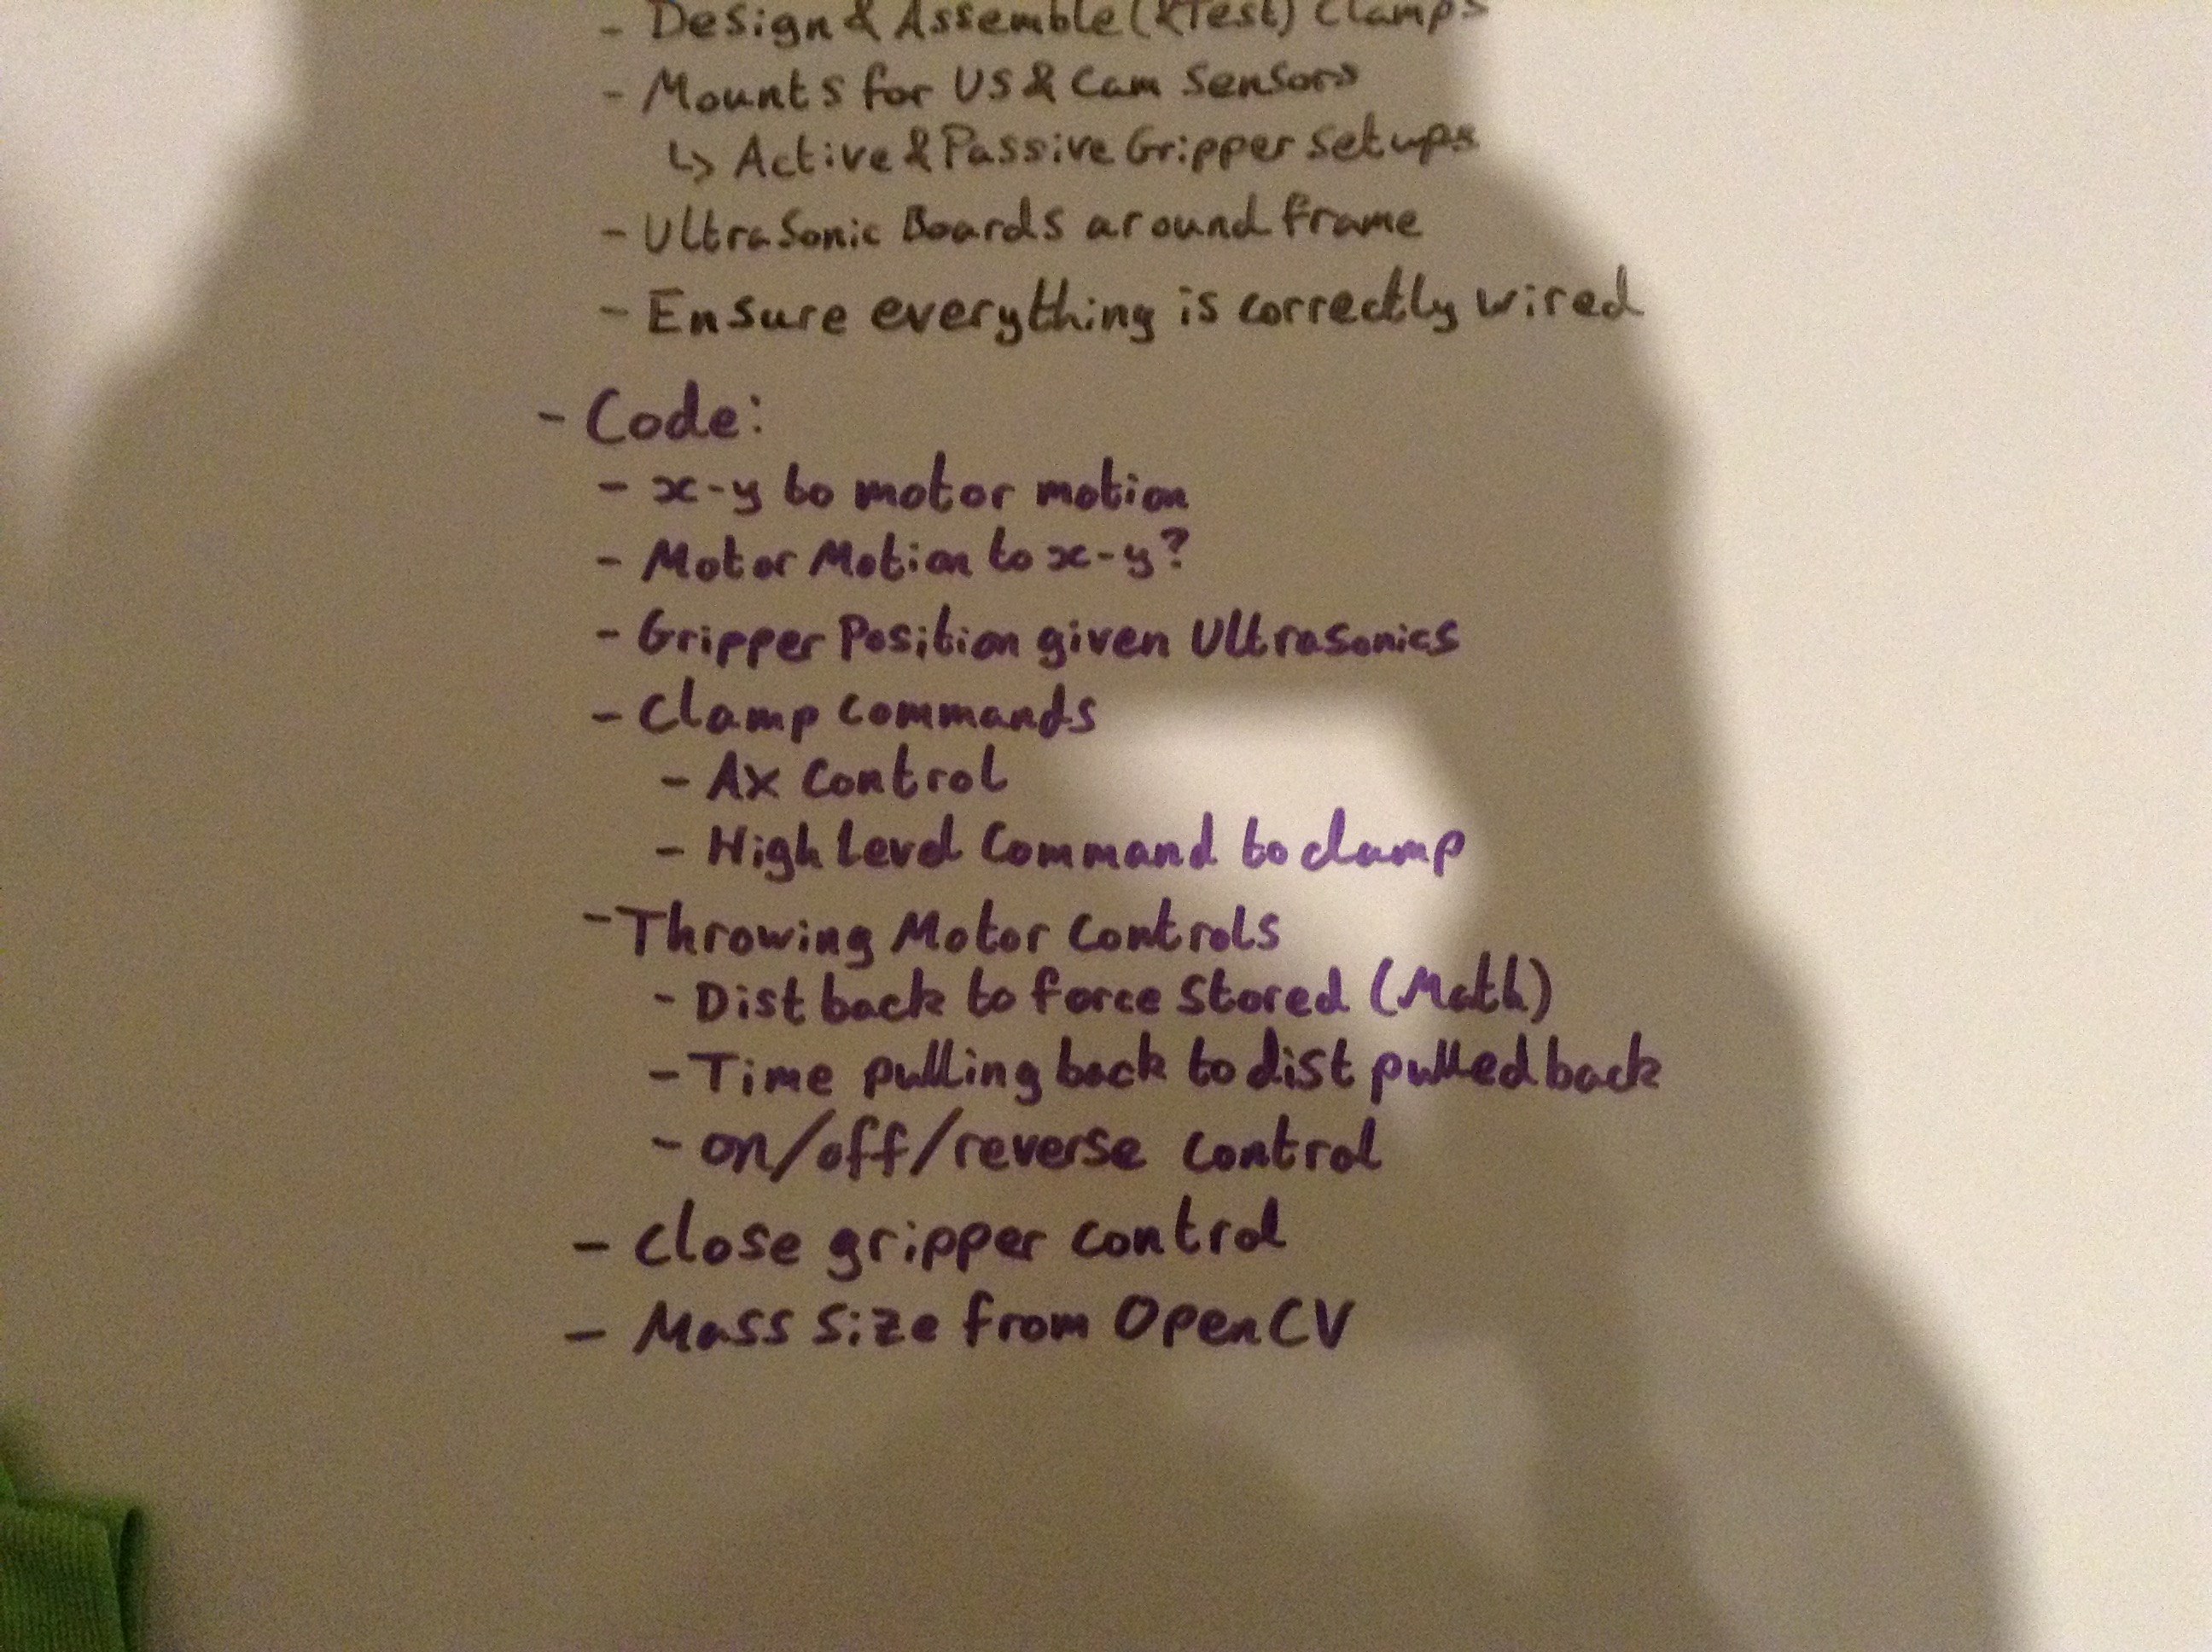 - Design & Assemble (& Test) Clamps
- Mounts for US & Cam Sensors
↳ Active & Passive Gripper Setups
- UltraSonic Boards around frame
- Ensure everything is correctly wired
- Code:
- x-y to motor motion
- Motor Motion to x-y?
- Gripper Position given Ultrasonics
- Clamp Commands
- AX Control
- High Level Command to clamp
- Throwing Motor Controls
- Dist back to force Stored (Math)
- Time pulling back to dist pulled back
- on/off/reverse control
- Close gripper control
- Mass Size from OpenCV